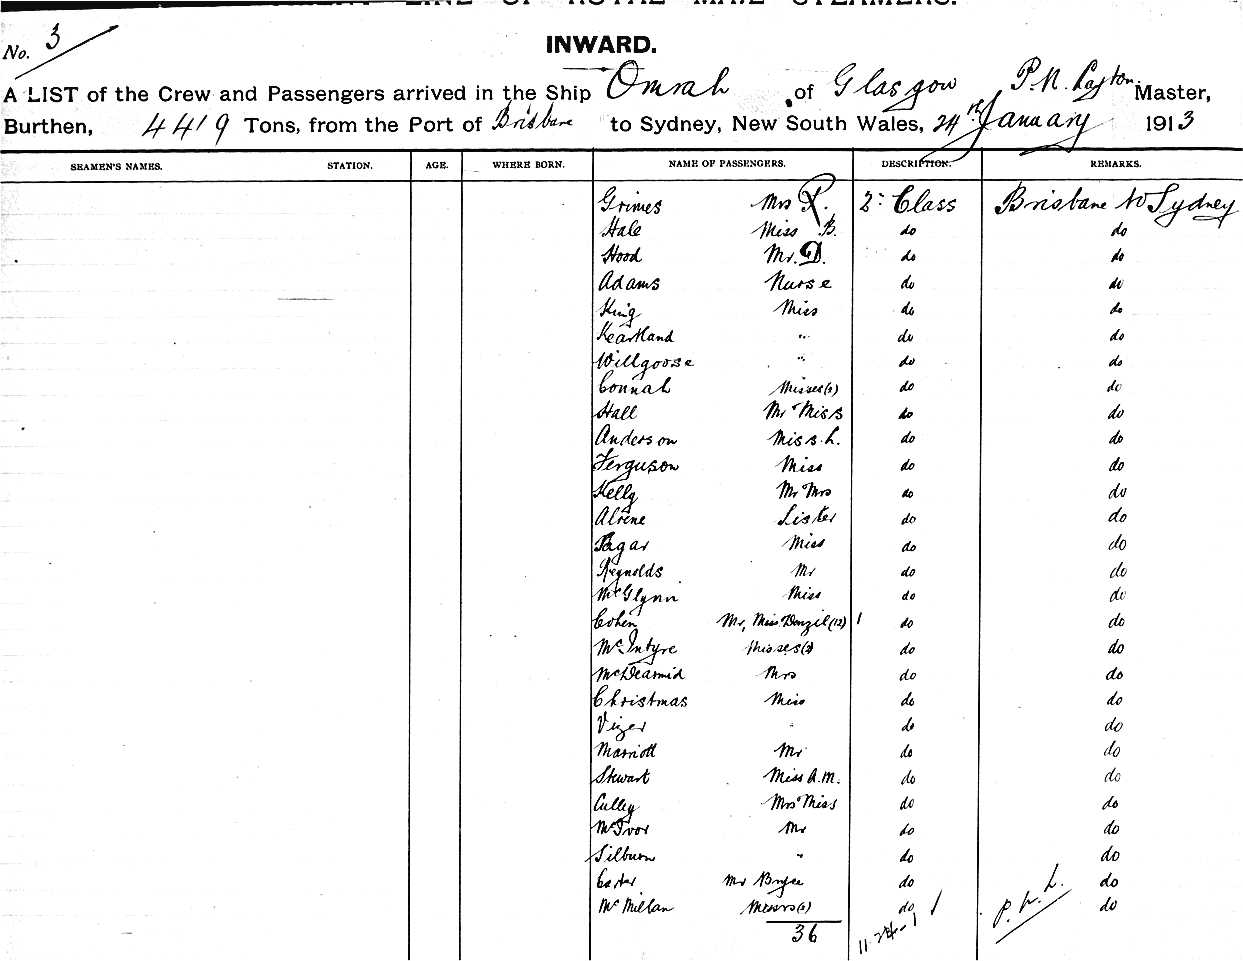 LINE OF ROYAL MAIL STEAMERS.
No. 3
INWARD.
A LIST of the Crew and Passengers arrived in the Ship Omrah of Glasgow P.N. Layton Master,
Burthen, 4419 Tons, from the Port of Brisbane to Sydney, New South Wales, 24th January 1913
SEAMEN'S NAMES. STATION. AGE. WHERE BORN. NAME OF PASSENGERS. DESCRIPTION. REMARKS.
Grimes Mrs P. 2: Class Brisbane to Sydney
Hale Miss B. do do
Hood Mr. D. do do
Adams Nurse do do
King Miss do do
Heartland " do do
Willgoose " do do
Connah Misses(s) do do
Hall Mr & Miss do do
Anderson Miss L. do do
Ferguson Miss do do
Kelly Mr & Mrs do do
Sister do do
Miss do do
Reynolds Mr do do
McGlynn Miss do do
Cohen Mr, Miss Denzil (12) 1 do do
McIntyre Misses(2) do do
McDearmid Mrs do do
Christmas Miss do do
Vizer " do do
Marriott Mr do do
Stewart Miss A.M. do do
Culley Mrs & Miss do do
McIvor Mr do do
Silburn " do do
Carter Mr Bryce do do
McMillan do 1 do
36 11-24-1 P.N.L.